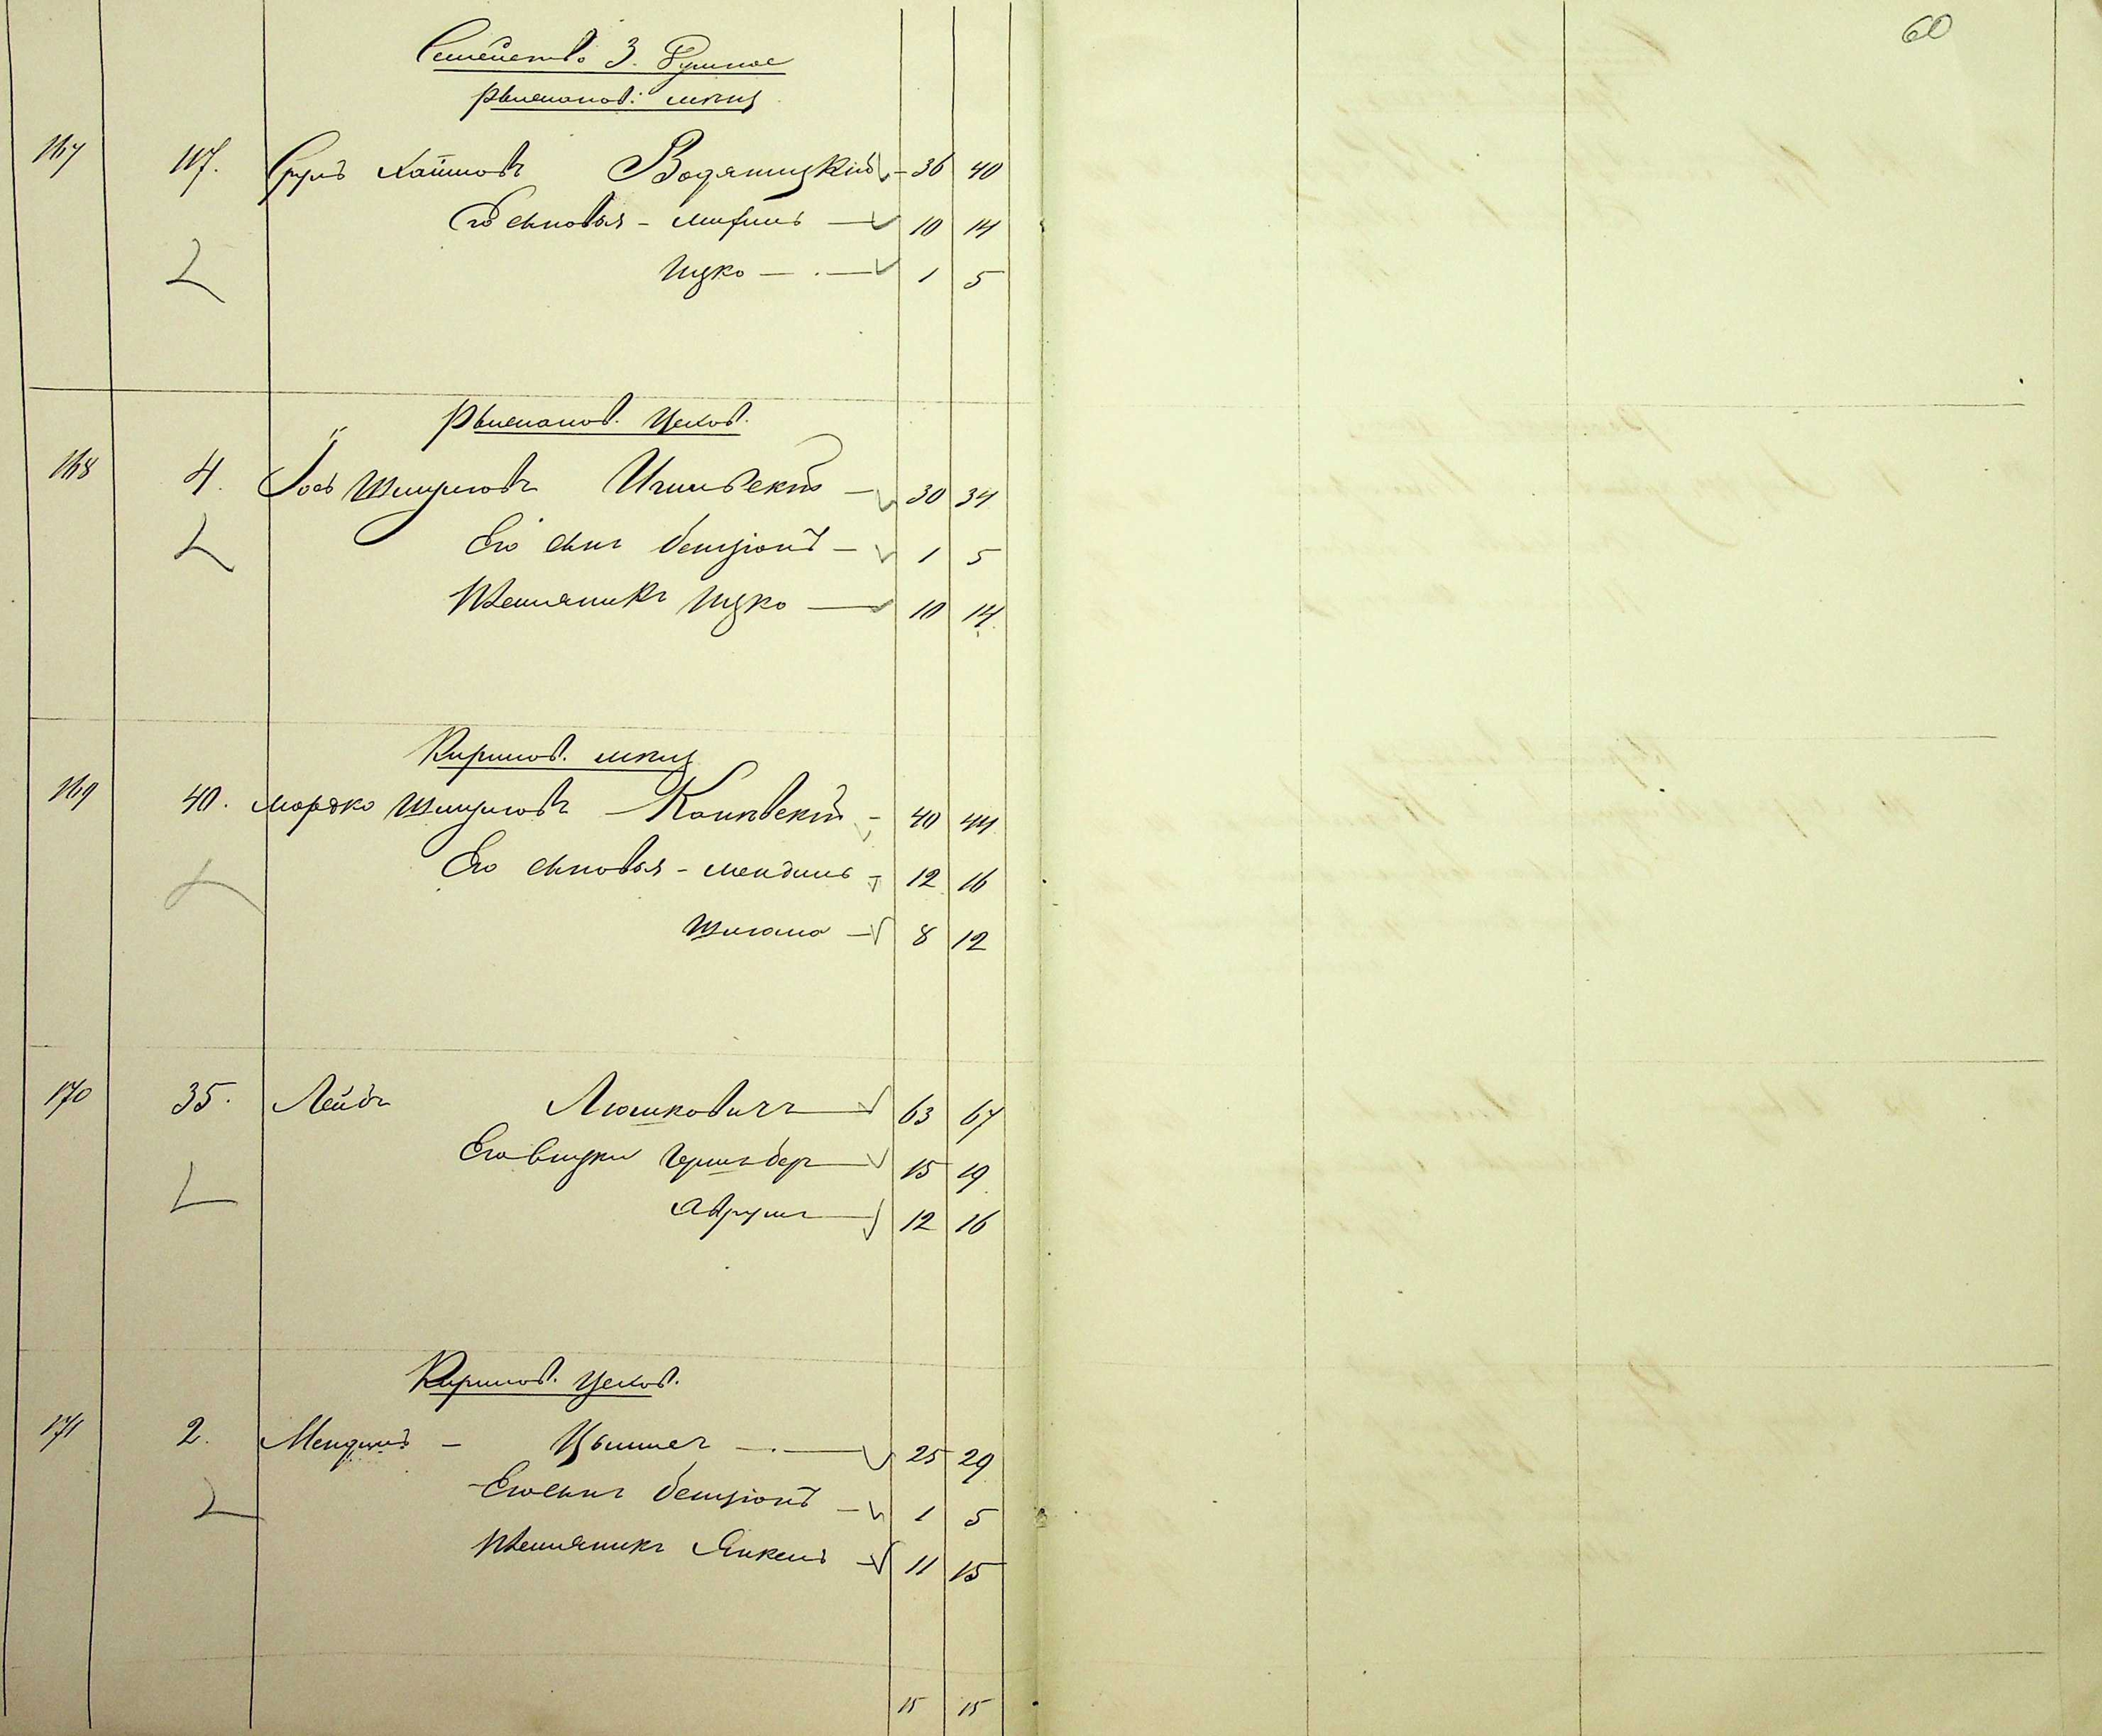 60
Семейство 3. душное
Рымонов: мѣщ
167 117. Сруль Хаимовъ Водяницкій 36 40
Его сыновья - Мифиль 10 14
Ицко 1 5
Рымонов. Цехов.
168 4. Іось Шмулювъ 30 34
Его сынъ Бенціонъ 1 5
Племянникъ Ицко 10 14
Киринов. мѣщ
169 40. Мордко Шмулювъ 40 44
Его сыновья - Мендиль 12 16
Шлома 8 12
170 35. Лейбъ Люшковичъ 63 67
Его внуки Гершъ-беръ 15 19
Аврумъ 12 16
Киринов. Цехов.
171 2. Мендиль - 25 29
Его сынъ Бенціонъ 1 5
Племянникъ Янкель 11 15
15 15